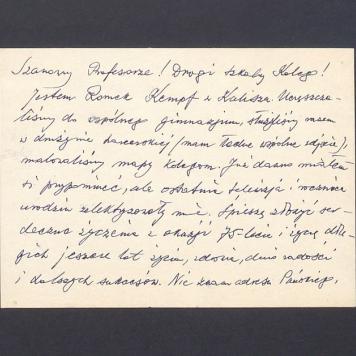 Szanowny Profesorze! Drogi szkolny Kolego!
Jestem Romek Kempf z Kalisza. Uczęszcza-
liśmy do wspólnego gimnazjum, służyliśmy razem
w drużynie harcerskiej (mam ładne wspólne zdjęcia),
malowaliśmy mapy kolegom. Już dawno miałem
się przypomnieć, ale ostatnia telewizja i rocznica
urodzin zelektryzowały mnie. Spieszę złożyć ser-
deczne życzenia z okazji 75-lecia i życzę dłu-
gich jeszcze lat życia, zdrowia, dużo radości
i dalszych sukcesów. Nie znam adresu Pańskiego,